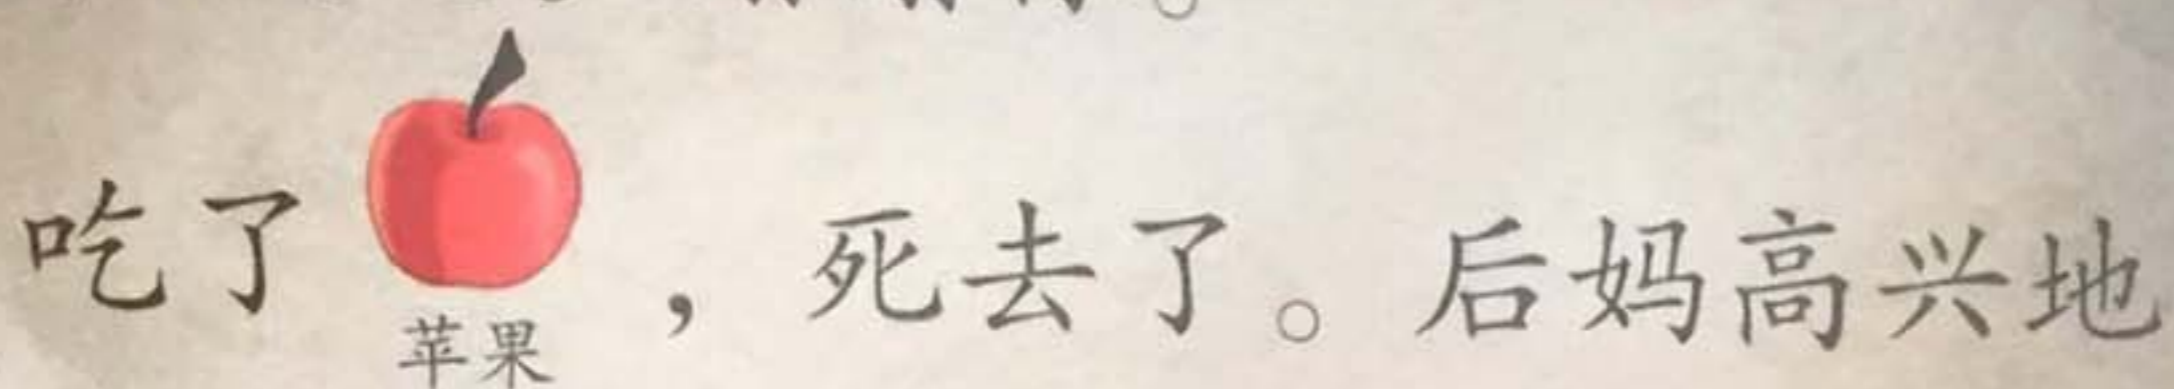 吃了苹果，死去了。后妈高兴地